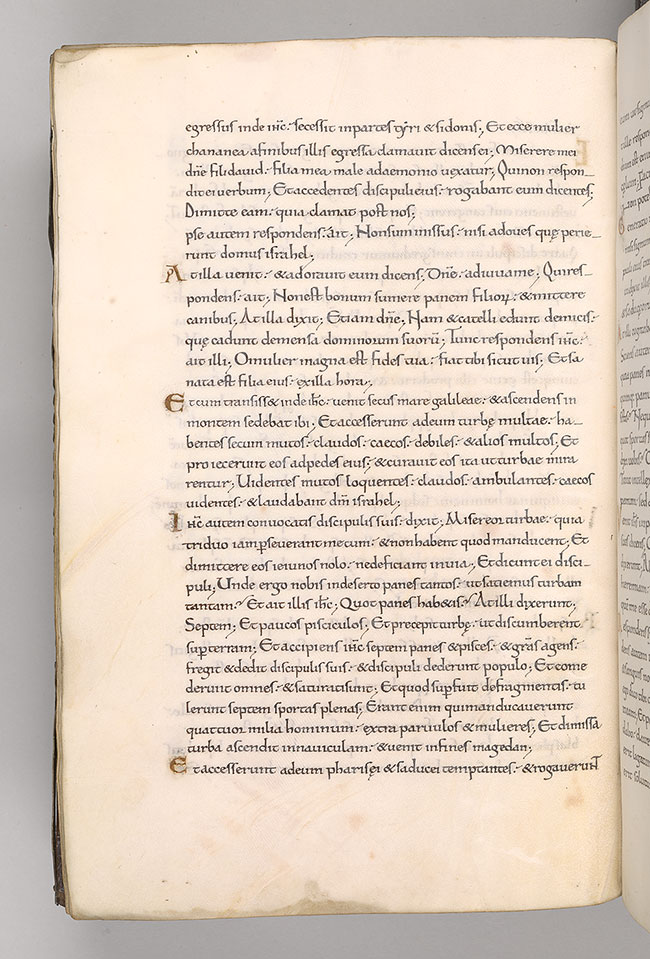 egressus inde ihc. secessit inpartes tyri & sidonis; Et ecce mulier
chananea afinibus illis egressa clamauit dicens ei; Miserere mei
dn̄e filidauid. filia mea male adaemonio uexatur; Qui non respon
dit ei uerbum; Et accedentes discipuli eius. rogabant eum dicentes;
Dimitte eam. quia clamat post nos;
pse autem respondens. ait; Non sum missus. nisi adoues quę perie
runt domus israhel;
At illa uenit. & adorauit eum dicens; Dn̄e. adiuua me; Qui res
pondens. ait; Non est bonum sumere panem filioꝝ. & mittere
canibus; At illa dixit; Etiam dn̄e; Nam & catelli edunt demicis.
quę cadunt demensa dominorum suorū; Tunc respondens ihc.
ait illi; O mulier magna est fides tua. fiat tibi sicut uis; Et sa
nata est filia eius. exilla hora;
Et cum transiss& inde ihc. uenit secus mare galileae. & ascendens in
montem sedebat ibi; Et accesserunt adeum turbę multae. ha
bentes secum mutos. claudos. caecos. debiles. & alios multos; Et
proiecerunt eos adpedes eius. & curauit eos ita ut turbae mira
rentur; Uidentes mutos loquentes. claudos. ambulantes. caecos
uidentes. & laudabant dm̄ israhel;
Ihc autem conuocatis discipulis suis. dixit; Misereor turbae. quia
triduo iam ꝑseuerant mecum. & non habent quod manducent; Et
dimittere eos ieiunos nolo. ne deficiant inuia; Et dicunt ei disci
puli; Unde ergo nobis indeserto panes tantos. ut satiemus turbam
tantam. Et ait illis ihc; Quot panes hab&is. At illi dixerunt;
Septem; Et paucos pisciculos; Et precepit turbę. ut discumberent
suꝑterram; Et accipiens ihc septem panes & pisces. & grās agens.
fregit & dedit discipulis suis. & discipuli dederunt populo; Et come
derunt omnes. & saturati sunt; Et quod suꝑfuit defragmentis. tu
lerunt septem sportas plenas; Erant enim qui manducauerunt
quattuor milia hominum. extra paruulos & mulieres; Et dimissa
turba ascendit innauiculam. & uenit infines magedan;
Et accesserunt adeum pharisęi & saducei temptantes. & rogauerunt